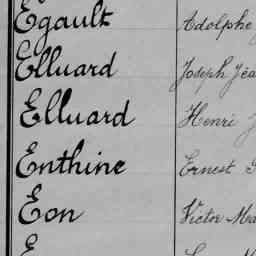 Egault Adolphe
Elluard Joseph Jea
Elluard Henri J
Enthine Ernest
Eon Victor Ma
E